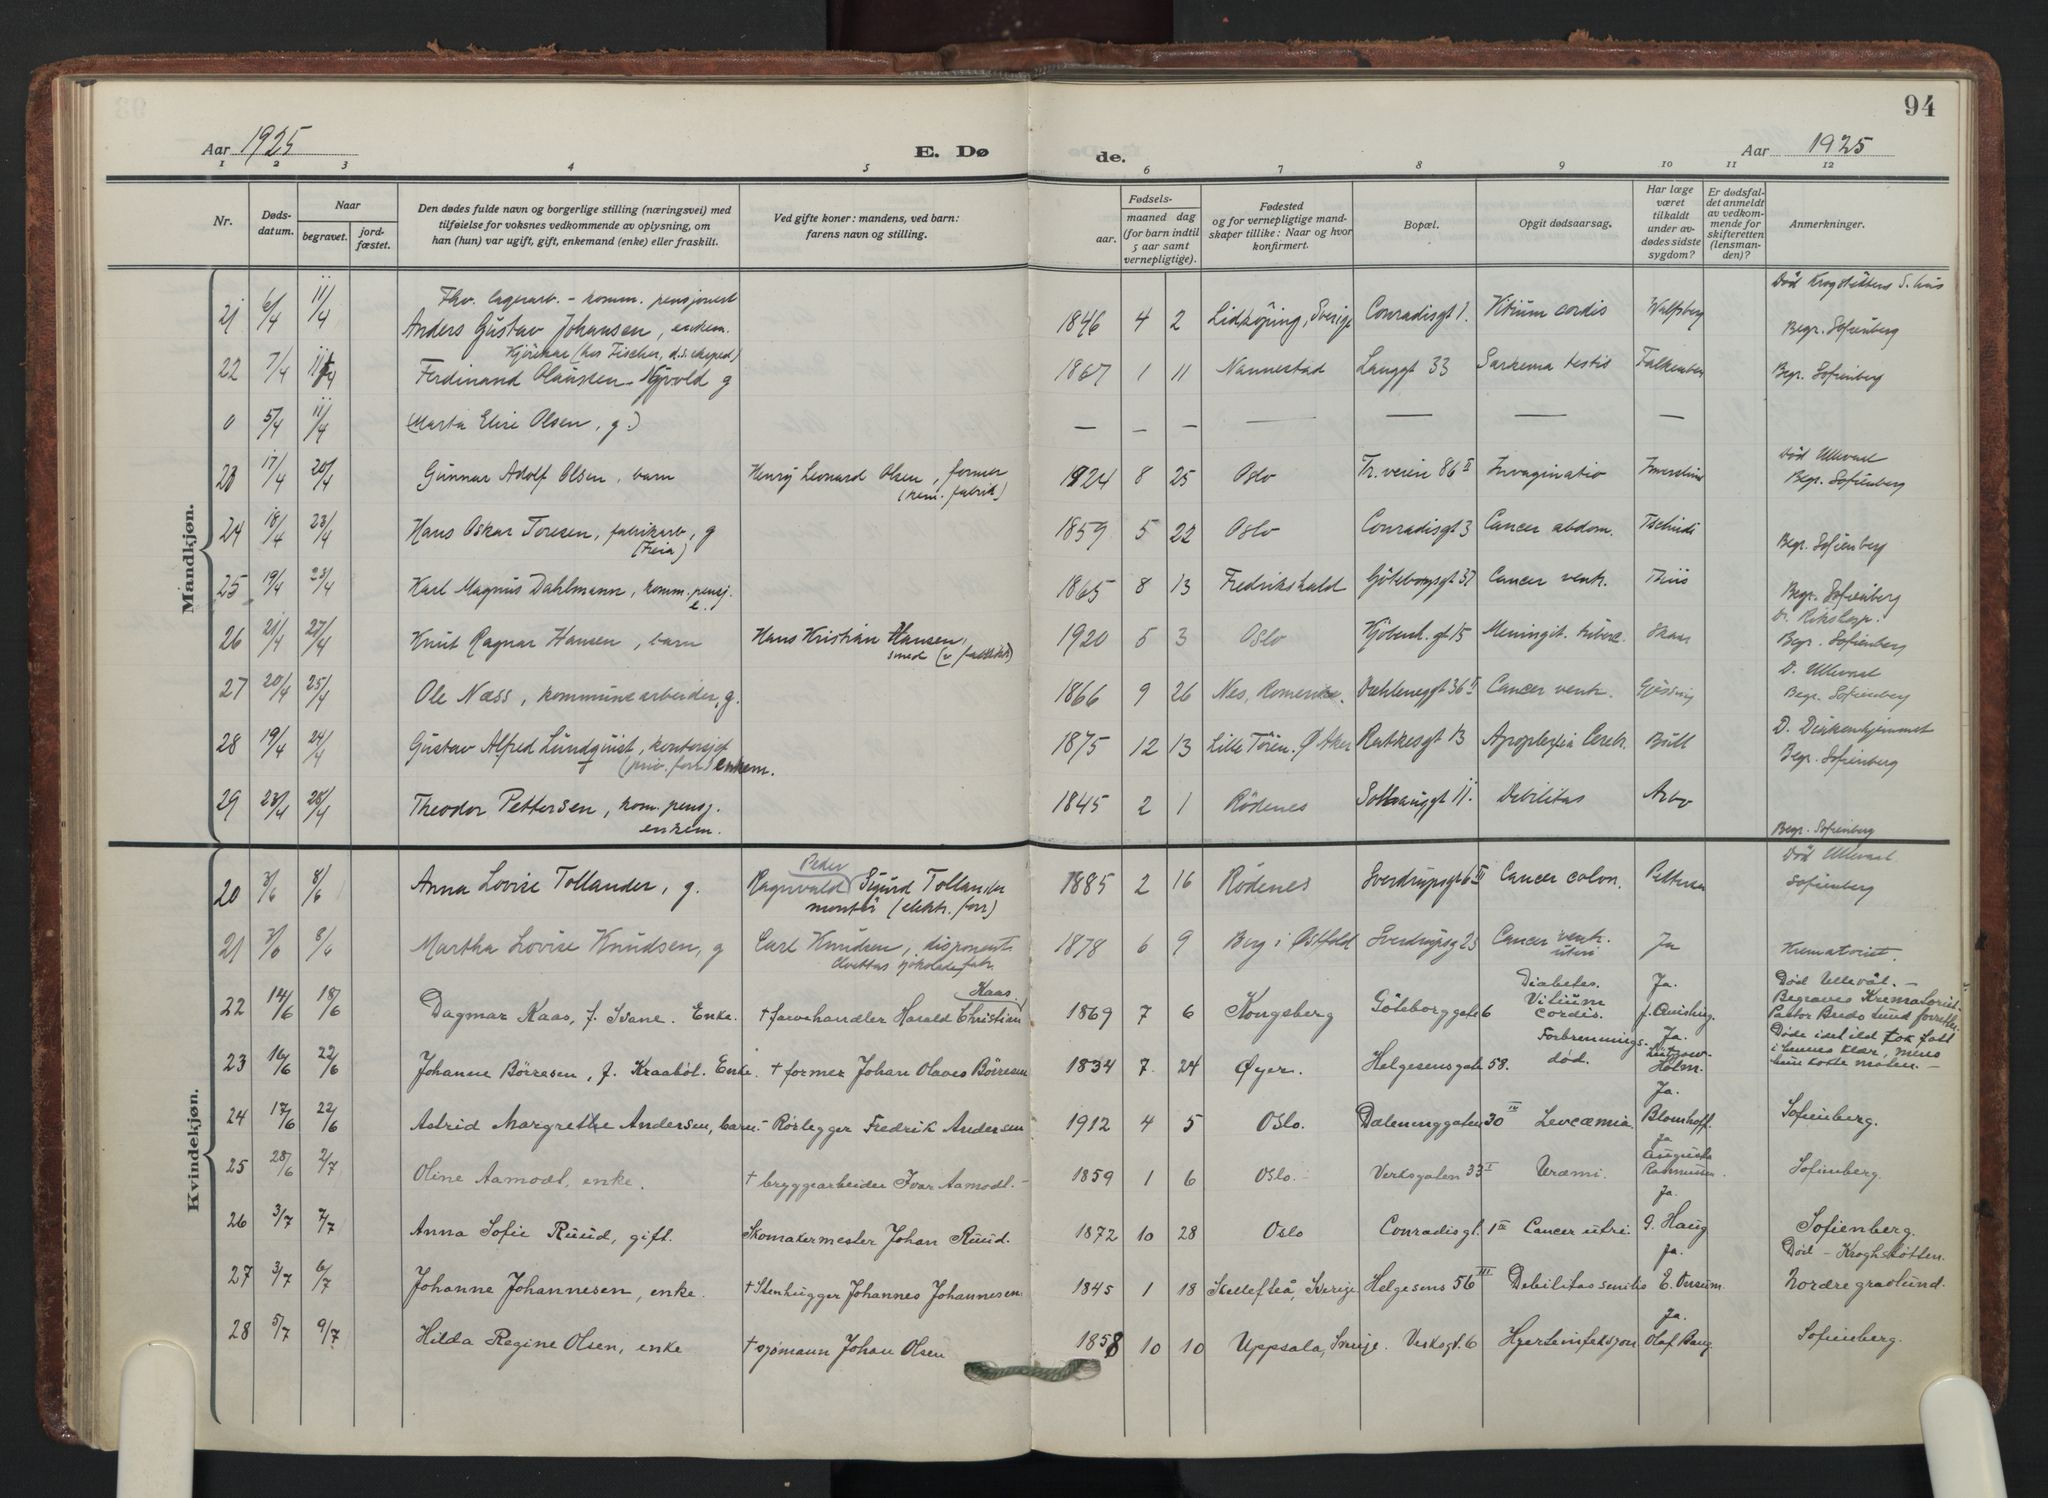 94
Aar 1925
E. Dø
de.
Aar 1925
1 2 3 4 5 6 7 8 9 10 11 12
Nr.
Døds-
datum.
Naar
begravet.
jord-
fæstet.
Den dødes fulde navn og borgerlige stilling (næringsvei) med
tilføielse for voksnes vedkommende av oplysning, om
han (hun) var ugift, gift, enkemand (enke) eller fraskilt.
Ved gifte koner: mandens, ved barn:
farens navn og stilling.
Fødsels-
aar.
maaned dag
(for barn indtil
5 aar samt
vernepligtige).
Fødested
og for vernepligtige mand-
skaper tillike: Naar og hvor
konfirmert.
Bopæl.
Opgit dødsaarsag.
Har læge
været
tilkaldt
under av-
dødes sidste
sygdom?
Er dødsfal-
det anmeldt
av vedkom-
mende for
skifteretten
(lensman-
den)?
Anmerkninger.
Mandkjøn.
Fhv. lagerarb. - komm. pensjonist
Død Krogstøttens S.hus
21 6/4 11/4 Anders Gustav Johansen, enkem. 1846 4 2 Lidköping, Sverige Conradisgt 1. Vitium cordis Begr. Sofienberg
Kjörekar (hos Fischer, d.s. eksped)
22 7/4 11/4 Ferdinand Olaussen Nyvold g 1867 1 11 Nannestad Langgt 33 Sarkema testis Begr. Sofienberg
0 5/4 11/4 (Marta Elise Olsen, g.) — — — — — — —
Død Ullevaal
23 17/4 20/4 Gunnar Adolf Olsen, barn Henry Leonard Olsen, former 1924 8 25 Oslo Tr.veien 86 II Invaginatio Begr. Sofienberg
(kem. fabrik)
24 18/4 23/4 Hans Oskar Toresen, fabrikarb, g 1859 5 22 Oslo Conradisgt 3 Cancer abdom. Tschudi Begr. Sofienberg
(Freia)
25 19/4 23/4 Karl Magnus Dahlmann, komm. pensj. 1865 8 13 Fredrikshald Göteborgsgt 37 Cancer ventr. Thiis Begr. Sofienberg
e.
D. Rikshosp.
26 21/4 27/4 Knut Ragnar Hansen, barn Hans Kristian Hansen, 1920 5 3 Oslo Kjöbenh.gt 15 Meningit. tuberc. Skaar Begr. Sofienberg
smed
D. Ullevaal
27 20/4 25/4 Ole Næss, kommunearbeider, g. 1866 9 26 Nes, Romerike. Dælenenggt 36 II Cancer ventr. Begr. Sofienberg
D. Diakonhjemmet
28 19/4 24/4 Gustav Alfred Lundquist, kontorsjef 1875 12 13 Lille Tören. Ø Aker Rathkesgt 13 Apoplexia Cerebr. Bull Begr. Sofienberg
(priv. forr.) enkem.
29 23/4 28/4 Theodor Pettersen, kom. pensj. 1845 2 1 Rödenes Sollvanggt 11. Debilitas Arbo
enkem. Begr. Sofienberg
Kvindekjøn.
Peder
Død Ullevaal
20 3/6 8/6 Anna Lovise Tollander, g. Ragnvald Sigurd Tollander 1885 2 16 Rödenes Sverdrupsgt 6 III Cancer colon. Pettersen Sofienberg
montör (elektr. forr)
21 3/6 8/6 Martha Lovise Knudsen, g Carl Knudsen, disponent 1878 6 9 Berg i Østfold Sverdrupsg 23 Cancer ventr. Ja Krematoriet.
sjokoladefabr. uteri
Kaas
Diabetes. Ja. Død Ullevål. —
22 14/6 18/6 Dagmar Kaas, f. Svane. Enke. † farvehandler Harald Christian 1869 7 6 Kongsberg Göteborggate 6 Vitium cordis. J. Quisling. Begraves Krematoriet
Pastor Bredo Lund forretter.
23 16/6 22/6 Johanne Börresen, f. Kraaböl. Enke. † former Johan Olaves Börresen 1834 7 24 Øyer. Helgesensgate 58. Forbrennings- død. Ja. Lützow- Holm. Døde idet ild tok fatt
i hennes klær, mens
hun kokte maten. —
24 17/6 22/6 Astrid Margrethe Andersen, barn. Rörlegger Fredrik Andersen 1912 4 5 Oslo. Dælenenggaten 30 IV Levcæmia. Ja. Blomhoff. Sofienberg.
25 28/6 2/7 Oline Aamodt, enke. † bryggearbeider Ivar Aamodt. — 1859 1 6 Oslo. — Verksgaten 33 I Uræmi. Ja Augusta Rasmussen Sofienberg.
26 3/7 7/7 Anna Sofie Ruud, gift. Skomakermester Johan Ruud. 1872 10 28 Oslo Conradisgt. 1 II Cancer utri. Ja. G. Haug Sofienberg.
Død — Kroghstøtten.
27 3/7 6/7 Johanne Johannesen, enke. † Stenhugger Johannes Johannesen 1845 1 18 Skellefteå, Sverige Helgesens 56 III Debilitas senilis Ja. E. Onsum. Nordre gravlund.
28 5/7 9/7 Hilda Regine Olsen, enke † sjømann Johan Olsen 1858 10 10 Uppsala, Sverige. Verksgt. 6 Hjerteinfeksjon Ja. Olaf Bang Sofienberg.